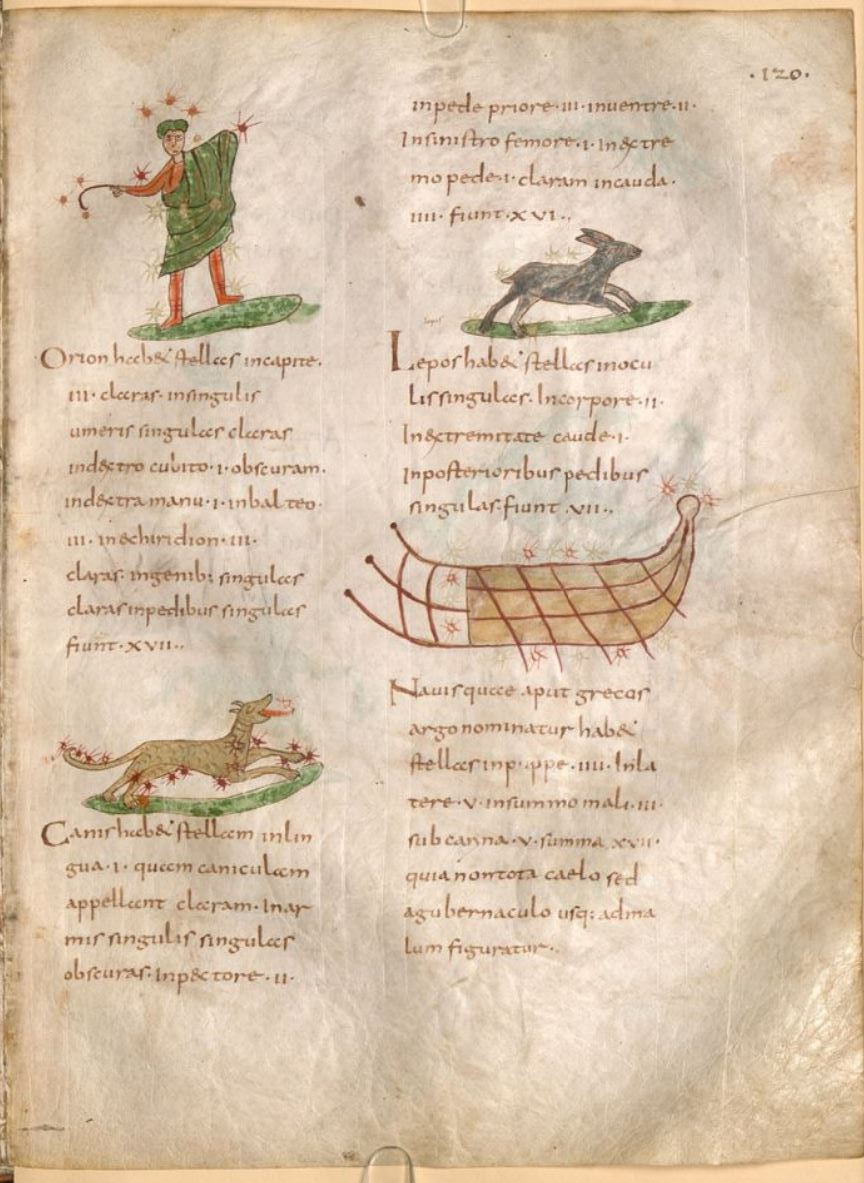 ·120·
Orion hab& stellas incapite.
III· claras· insingulis
umeris singulas claras
indextro cubito· I· obscuram.
indextra manu· I· inbalteo·
III· inenchiridion· III·
claras· ingenib; singulas
claras inpedibus singulas
fiunt· XVII··
Canis hab& stellam inlin
gua· I· quam caniculam
appellant claram· Inar
mis singulis singulas
obscuras· Inpectore· II·
inpede priore· III· inventre· II·
Insinistro femore· I· Inextre
mo pede· I· claram incauda·
IIII· fiunt· XVI··
lepus
Lepos hab& stellas inocu
lis singulas· Incorpore· II·
Inextremitate caude· I·
Inposterioribus pedibus
singulas· fiunt· VII··
Navis quae aput grecos
argo nominatur hab&
stellas inp·ppe· IIII· Inla
tere· V· insummo mali· III·
sub carina· V· summa XVII·
quia non tota caelo sed
agubernaculo usq; adma
lum figuratur·